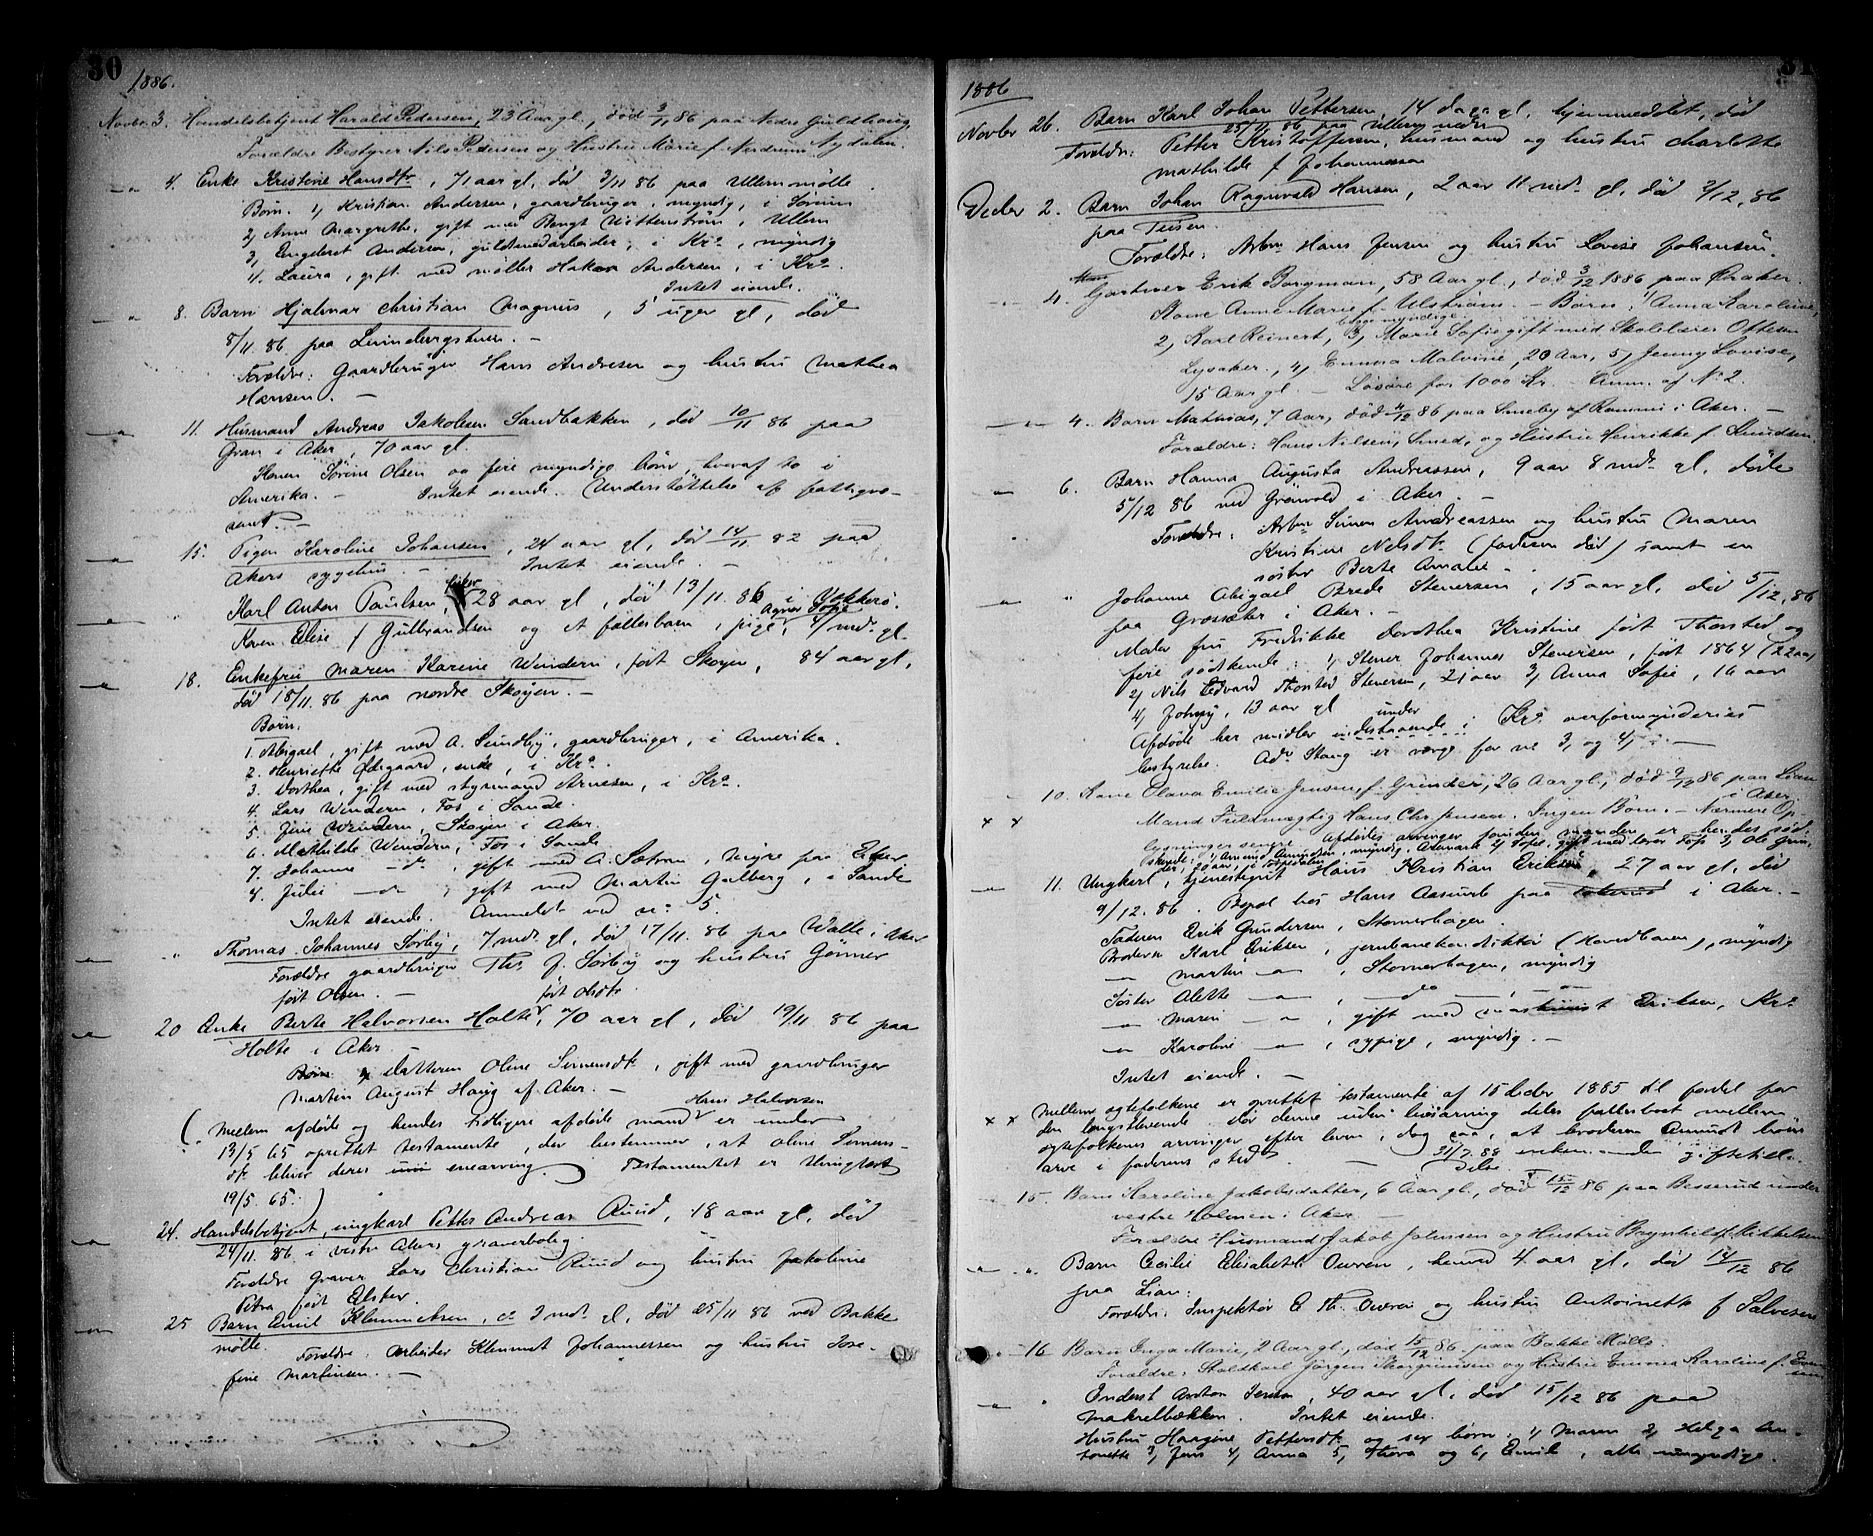 30
1886.
Novbr 3. Handelsbetjent Harald Pedersen, 23 Aar gl., død 3/11 86 paa Nedre Guldhaug,
Forældre Bestyrer Nils Pedersen og Hustru Marie f. Nerdrum Nydalen.
-„- 4. Enke Kristine Hansdtr, 71 aar gl, død 3/11 86 paa Ullern mølle.
Børn. 1, Kristian Andersen, gaardbruger, myndig, i Sørum
2, Anne Margrethe, gift med Bengt Wittenstrøm, Ullern
3, Engebret Andersen, guldsmedarbeider, i Kra, myndig
4. Laura, gift med møller Hakon Andersen, i Kra.
Intet eiende.
-„- 8. Barn Hjalmar Christian Magnus, 5 uger gl, død
8/11. 86 paa Linderngstuen. -
Forældre: Gaardbruger Hans Andresen og hustru Mathea
Hansen. -
-„- 11. Husmand Andreas Jakobsen Sandbakken, død 10/11 86 paa
Gran i Aker, 70 aar gl.
Konen Sørine Olsen og fire myndige børn, hvoraf to i
Amerika. - Intet eiende. (Understøttelse af fattigvæ-
senet. -
-„- 15. Pigen Karoline Johansen, 24 aar gl, død 14/11 82 paa
Akers sygehus. - Intet eiende. -
-„- „ Karl Anton Paulsen, fisker 28 aar gl, død 13/11. 86 i Vækkerø.
Konen Elise f Gulbrandsen og et fællesbarn, pige, Agnes Sofie 4 md. gl.
-„- 18. Enkefru Maren Karine Windern, født Skøyen, 84 aar gl,
død 18/11. 86 paa nordre Skøyen. -
Børn.
1. Abigael, gift med A. Sundby, gaardbruger, i Amerika.
2. Henriette Ødegaard, enke, i Kra.
3. Dorthea, gift med styrmand Arnesen, i Kra.
4. Lars Windern, Fos i Sande.
5. Jens Windern, Skøyen i Aker.
6. Mathilde Windern, Fos i Sande
7. Johanne -do-, gift med A. Sætren, Myre paa Eker
8. Julie -„-, gift med Martin Galberg, i Sande
Intet eiende. Anmeldt ved no 5.
-„- „ Thomas Johannes Sørby, 7 md. gl, død 17/11. 86 paa Valle i Aker
Forældre gaardbruger Ths. J. Sørby og hustru Gønner
født Olsen. -
-„- 20 Enke Berte Halvorsen Holte, født Olsdtr, 70 aar gl, død 19/11. 86 paa
Holte i Aker. -
Børn: datteren Oline Simensdtr, gift med gaardbruger
Martin August Haug af Aker. -
(Mellem afdøde og hendes tidligere afdøde mand Hans Halvorsen er under
13/5 65 oprettet testamente, der bestemmer, at Oline Simens-
dtr bliver deres enearving. Testamentet er thinglæst
19/5. 65.)
-„- 24. Handelsbetjent, ungkarl Petter Andreas Ruud, 18 aar gl, død
24/11. 86 i vestre Akers graverbolig.
Forældre Graver Lars Christian Ruud og hustru Jakobine
Petra født Elster.
-„- 25 Barn Emil Klemmetsen, ca 2 md. gl, død 25/11 86 ved Bakke
mølle. Forældre: Arbeider Klemmet Johannessen og hustru Jose-
fine Martinsen. -
31
1886
Novbr 26. Barn Karl Johan Pettersen, 14 dage gl, hjemmedøbt, død
25/11 86 paa Ullern nedre
Forældre: Petter Kristoffersen, husmand og hustru Charlotte
Mathilde f Johannessen
Decbr 2. Barn Johan Ragnvald Hansen, 2 aar 11 md. gl, død 2/12, 86
paa Teisen.
Forældre: Arbr Hans Jensen og hustru Lovise Johansen.
-„- 4. Gartner Erik Borgman, 58 Aar gl., død 3/12 1886 paa Braker.
Kone Anne Marie f. Ulstrøm. - Børn: 1, Anna Karoline,
2, Karl Reinert, begge myndige. 3, Marie Sofie gift med Skolelærer Ottesen
Lysaker., 4, Emma Malvine, 20 Aar, 5, Jenny Lovise,
15 Aar gl - Løsøre for 1000 Kr. - Anm. af No 2.
-„- 4. Barn Mathias, 7 Aar, død 4/12 86 paa Smeby af Rommen i Aker. -
Forældre: Hans Nilsen, Smed, og Hustru Henrikke f Knudsen
-„- 6. Barn Hanna Augusta Andreassen, 9 aar 8 md. gl, døde
5/12 86 ved Grønvold i Aker. -
Forældre: Arbr Simen Andreassen og hustru Maren
Kristine Nilsdtr (faderen død) samt en
søster Berte Amalie -
-„- „ Johanne Abigael Brede Stenersen, 15 aar gl, død 5/12, 86
paa Grossæter i Aker. -
Moder fru Fredrikke Dorothea Kristine født Thorsted og
fire søskende: 1, Stener Johannes Stenersen, født 1864 (22 aar)
2, Nils Edvard Thorsted Stenersen, 21 aar 3, Anna Sofie, 16 aar
4, Johny, 13 aar gl
Afdøde har midler indestaaende under i Kra. overformynderies
bestyrelse. Adv. Stang er værge for ne 3, og 4, . -
- 10. Kone Olava Emilie Jensen f. Grinder, 26 Aar gl, død 9/12 86 paa Lian
i Aker
x x Mand Fuldmægtig Hans Chr Jensen. Ingen Børn. - Nærmere Op-
lysninger senere. Afdødes arvinger foruden manden er hendes sød-
skende: 1, Amund Amundsen, myndig, 2, Sofie, gift med 3, Ole Grin-
der, 20 aar,
-„- 11. Ungkarl, tjenestegut Hans Kristian Eriksen, 27 aar gl, død
9/12. 86. Bopæl hos Hans Aasurb paa i Aker. -
Faderen Erik Gundersen, Stomerhagen.
Broderen Karl Eriksen, jernbanekonduktør (Hovedbanen), myndig
-„- Martin -„-, Stomerhagen, myndig
Søster Alette -„-, -do-, -„-
-„- Maren -„-, gift med maskinist Eriksen, Kra.
-„- Karoline -„-, sypige, myndig. -
Intet eiende. -
x x Mellem ægtefolkene er oprettet testamente af 15 decbr 1885 til fordel for
den længstlevende. Dør denne uden livsarving deles fællesboet mellem
ægtefolkenes arvinger efter loven, dog saa, at broderen Amunds børn
arve i faderens sted. - 31/7. 88 enkemanden giftetill.
- 15. Barn Karoline Jakobsdatter, 6 Aar gl., død 15/12 86 paa Besserud under
vestre Holmen i Aker -
Forældre Husmand Jakob Johnsen og Hustru Ragnhild f Kittelsen
-„- „ Barn Cecilie Elisabeth Owren, henved 4 aar gl, død 14/12 86
paa Lian.
Forældre: Inspektør O Th. Owren og hustru Antoinette f Salvesen
-„- 16 Barn Inga Marie, 2 Aar gl., død 15/12 86 paa Bakke Mølle.
Forældre: Staldkarl Jørgen Thorgrimsen og Hustru Emma Karoline f. Even
sen
-„- „ Enderst Anton Jensen, 40 aar gl, død 15/12 86 paa
Makrelbækken. Intet eiende.
Hustru Haagine Pettersdtr og sex børn: 1, Maren 2, Helga An-
tonette 3, Jens 4, Anna 5, Thora og 6, Emil, alle umyndige.